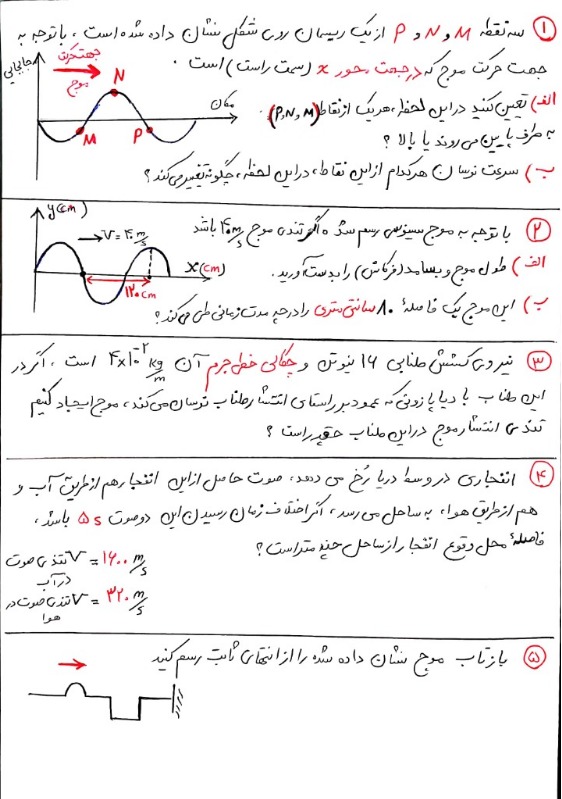 ۱ سه نقطه M و N و P از یک ریسمان روی شکل نشان داده شده است، با توجه به
جهت حرکت موج که در جهت محور x (سمت راست) است.
الف) تعیین کنید در این لحظه، هر یک از نقاط (P,N,M)
به طرف پایین می‌روند یا بالا؟
ب) سرعت نوسان هرکدام از این نقاط، در این لحظه، چگونه تغییر می‌کند؟
جابجایی
جهت حرکت
موج
N
مکان
M
P
۲ با توجه به موج سینوسی رسم شده اگر تندی موج ۴۰ m/s باشد
الف) طول موج و بسامد (فرکانس) را بدست آورید.
ب) این موج یک فاصلهٔ ۸۰ سانتی متری را در چه مدت زمانی طی می‌کند؟
y(cm)
V = ۴۰ m/s
x(cm)
۱۲۰ cm
۳ نیروی کشش طنابی ۱۶ نیوتن و چگالی خطی جرم آن ۴×۱۰⁻² kg/m است، اگر در
این طناب با دیاپازونی که عمود بر راستای انتشار طناب نوسان می‌کند، موج ایجاد کنیم
تندی انتشار موج در این طناب چقدر است؟
۴ انفجاری در وسط دریا رُخ می دهد، صوت حاصل از این انفجار هم از طریق آب و
هم از طریق هوا، به ساحل می رسد، اگر اختلاف زمان رسیدن این دو صوت ۵s باشد،
فاصلهٔ محل وقوع انفجار از ساحل چند متر است؟
V تندی صوت در آب = ۱۶۰۰ m/s
V تندی صوت در هوا = ۳۲۰ m/s
۵ بازتاب موج نشان داده شده را از انتهای ثابت رسم کنید